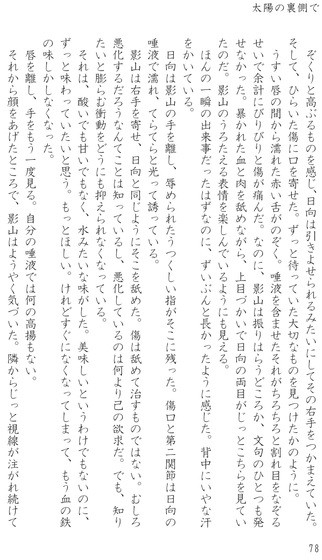 太陽の裏側で
ぞくりと高ぶるものを感じ、日向は引きよせられるみたいにしてその右手をつかまえていた。
そして、ひらいた傷に口を寄せた。ずっと待っていた大切なものを見つけたかのように。
うすい唇の間から濡れた赤い舌がのぞく。唾液を含ませたそれがちろちろと割れ目をなぞる
せいで余計にぴりぴりと傷が痛んだ。なのに、影山は振りはらうどころか、文句のひとつも発
せなかった。暴かれた血と肉を舐めながら、上目づかいで日向の両目がじっとこちらを見てい
たのだ。影山のうろたえる表情を楽しんでいるようにも見える。
ほんの一瞬の出来事だったはずなのに、ずいぶんと長かったように感じた。背中にいやな汗
をかいている。
日向は影山の手を離し、辱められたうつくしい指がそこに残った。傷口と第二関節は日向の
唾液で濡れ、てらてらと光って誘っている。
影山は右手を寄せ、日向と同じようにそこを舐めた。傷は舐めて治すものではない。むしろ
悪化するだろうなんてことは知っているし、悪化しているのは何より己の欲求だ。でも、知り
たいと膨らむ衝動をどうにも抑えられなくなっている。
それは、酸いでも甘いでもなく、水みたいな味がした。美味しいというわけでもないのに、
ずっと味わっていたいと思う。もっとほしい。けれどすぐになくなってしまって、もう血の鉄
の味しかしなくなった。
唇を離し、手をもう一度見る。自分の唾液では何の高揚もない。
それから顔をあげたところで、影山はようやく気づいた。隣からじっと視線が注がれ続けて
78